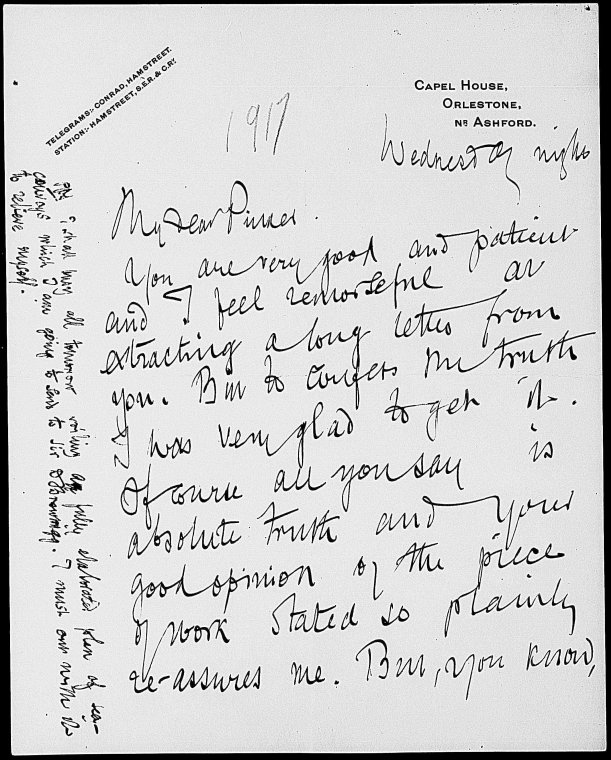 TELEGRAMS:- CONRAD, HAMSTREET.
STATION:- HAMSTREET, S.E.R. & C.Ry.
CAPEL HOUSE,
ORLESTONE,
NR ASHFORD.
1917
Wednesday night
My dear Pinker.
You are very good and patient
and I feel remorseful at
extracting a long letter from
you. But to confess the truth
I was very glad to get it.
Of course all you say is
absolute truth and your
good opinion of the piece
of work stated so plainly
re-assures me. But, you know,
PS I shall my all tomorrow writing a fully elaborated plan of sea-
convoys which I am going to send to Sir D Brownrigg. I must out with it
to relieve myself.